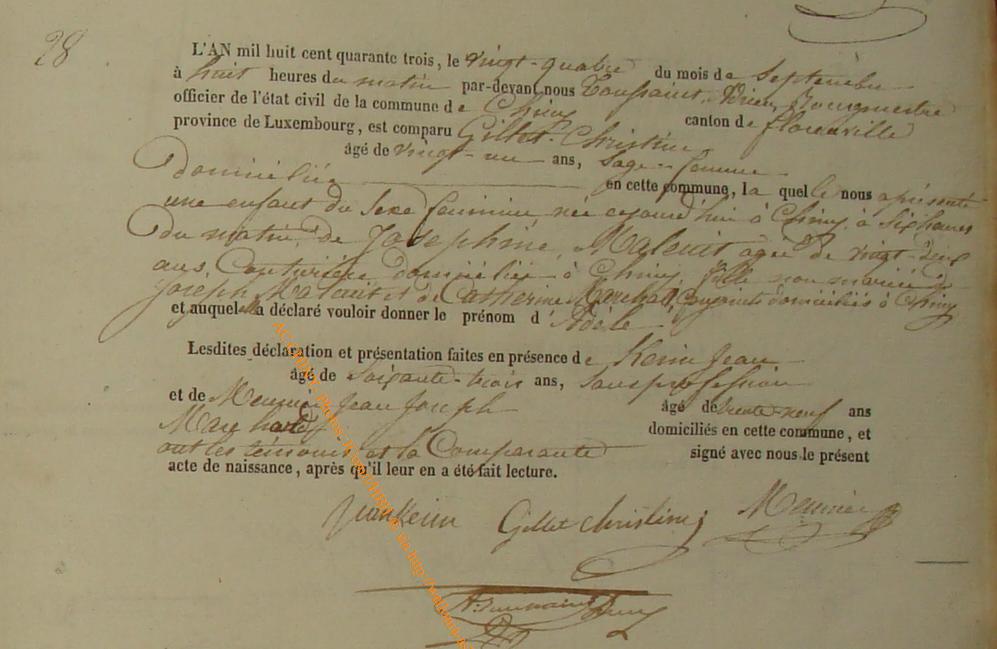 28
L'AN mil huit cent quarante trois, le vingt-quatre du mois de Septembre
à huit heures du matin par-devant nous Toussaint, Bourgmestre
officier de l'état civil de la commune de Chiny canton de florenville
province de Luxembourg, est comparu Gillet Christine
âgé de vingt-un ans, Sage-femme
Domiciliée en cette commune, la quelle nous a présenté
une enfant du Sexe feminin née cejourd'hui à Chiny à Six heures
Du matin, de Josephine Malouit agée de vingt-deux
ans, Couturière domiciliée à Chiny, fille non mariée de
Joseph Malouit et de Catherine Marchal, Conjoints domiciliés à Chiny
et auquel elle a déclaré vouloir donner le prénom d'Adèle
Lesdites déclaration et présentation faites en présence de Kerin Jean
âgé de Soixante-trois ans, Sans profession
et de Meunier Jean Joseph âgé de trente-neuf ans
domiciliés en cette commune, et
ont les témoins et la Comparante signé avec nous le présent
acte de naissance, après qu'il leur en a été fait lecture.
Jean Kerin Gillet Christine Meunier